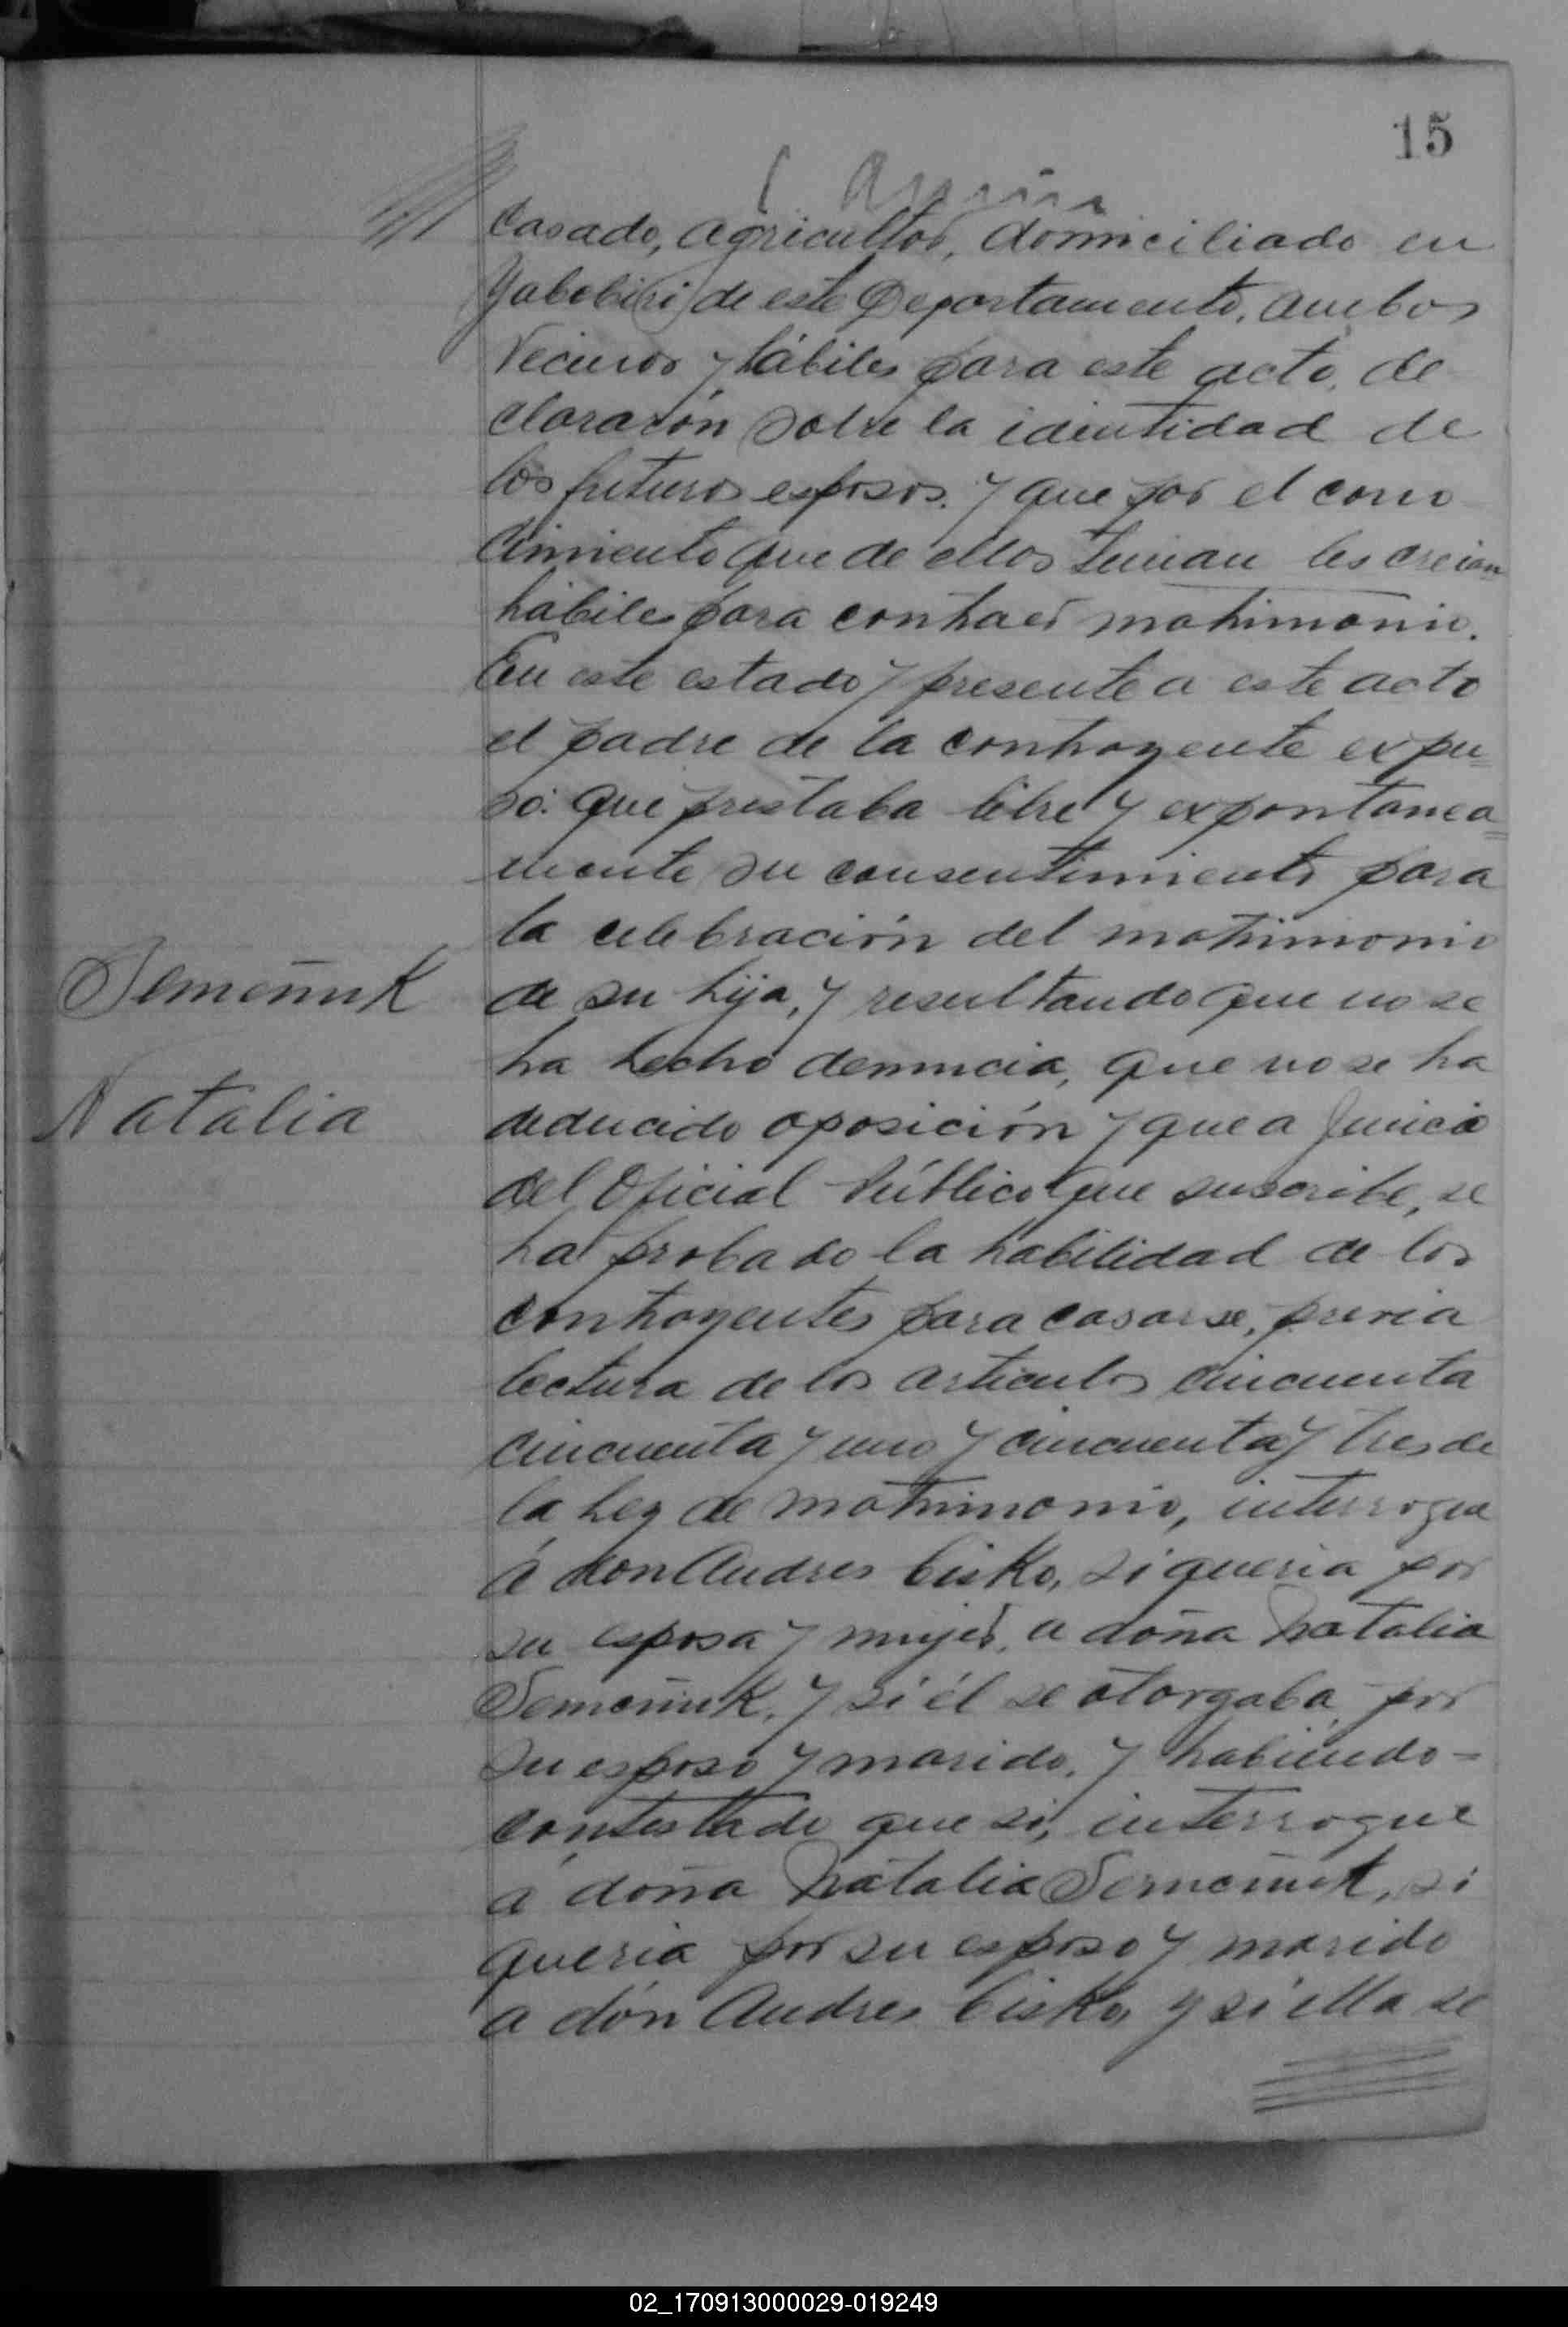 15
casado, agricultor, domiciliado en
Yabebiri de este Departamento, ambos
vecinos y hábiles para este acto, de
clararón sobre la identidad de
los futuros esposos. y que por el cono
cimiento que de ellos tenian les creian
hábiles para contraer matrimonio.
En este estado y presente a este acto
el padre de la contrayente expu
so: que prestaba libre y expontanea
mente su consentimiento para
la celebración del matrimonio
Semeñuk
de su hija, y resultando que no se
ha hecho denuncia, que no se ha
Natalia
deducido oposición y que a juicio
del Oficial Público que suscribe, se
ha probado la habilidad de los
contrayentes para casarse, previa
lectura de los articulos cincuenta
cincuenta y uno y cincuenta y tres de
la Ley de matrimonio, interrogue
á don Andres Cisko, si queria por
su esposa y mujer, a doña Natalia
Semeñuk, y si él se otorgaba por
su esposo y marido, y habiendo-
contestado que si, interrogue
a doña Natalia Semeñuk, si
queria por su esposo y marido
a dón Andres Cisko, y si ella se
02_170913000029-019249